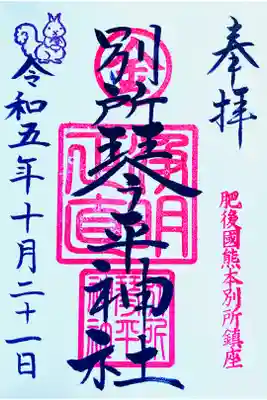 奉拝
肥後國熊本別所鎮座
別所琴平神社
令和五年十月二十一日